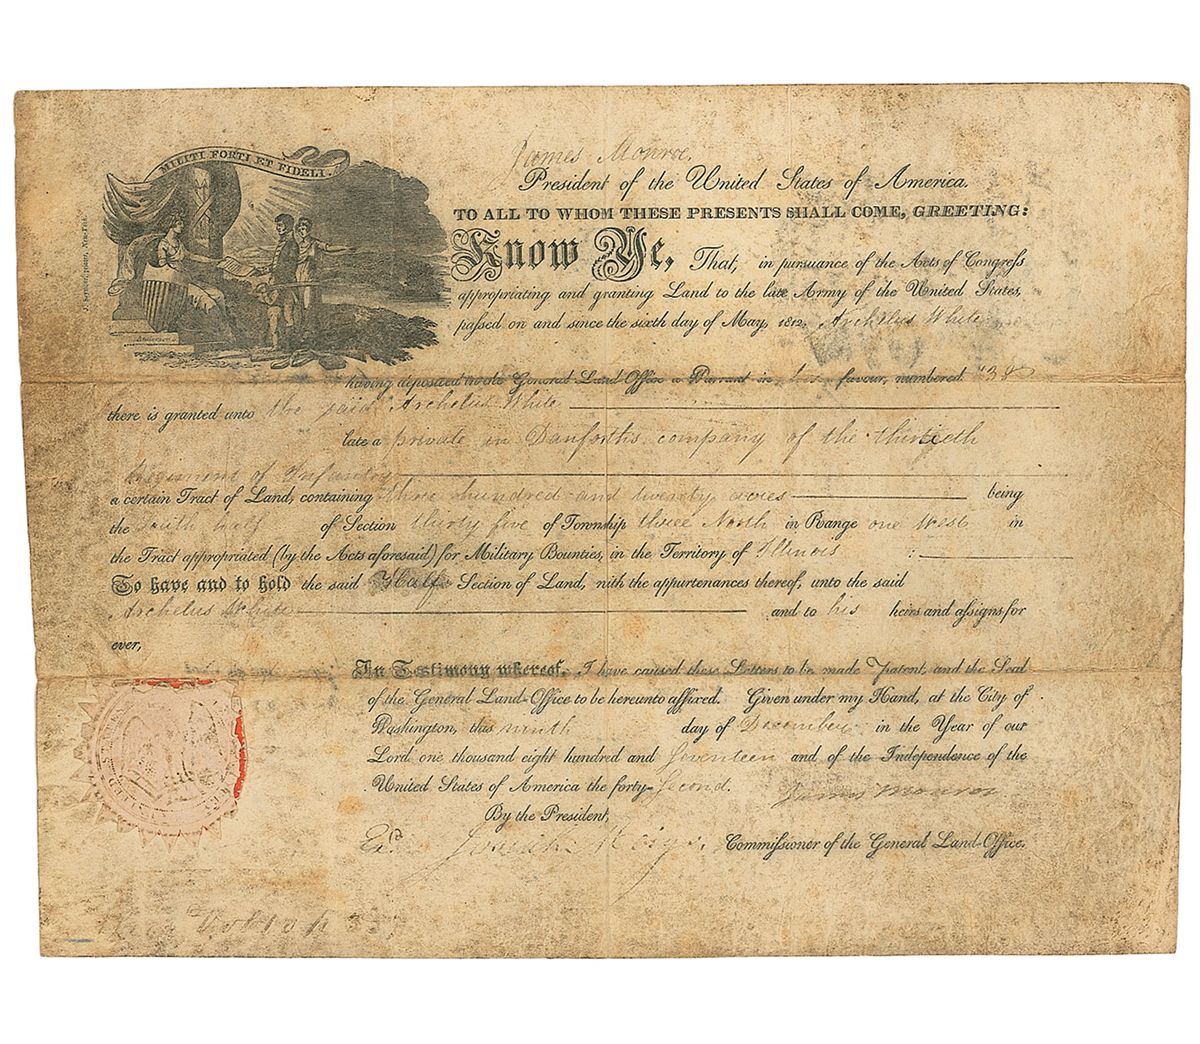 MILITI FORTI ET FIDELI.
James Monroe,
President of the United States of America.
TO ALL TO WHOM THESE PRESENTS SHALL COME, GREETING:
Know Ye, That, in pursuance of the Acts of Congress
appropriating and granting Land to the late Army of the United States,
passed on and since the sixth day of May, 1812, Archelus White
having deposited in the General Land-Office a Warrant in his favour, numbered
there is granted unto the said Archelus White
late a private in Danforth's company of the thirtieth
Regiment of Infantry
a certain Tract of Land, containing three hundred and twenty acres being
the South half of Section thirty five of Township three North in Range one West in
the Tract appropriated (by the Acts aforesaid) for Military Bounties, in the Territory of Illinois
To have and to hold the said Half Section of Land, with the appurtenances thereof, unto the said
Archelus White and to his heirs and assigns for
ever,
In Testimony whereof, I have caused these Letters to be made Patent, and the Seal
of the General Land-Office to be hereunto affixed. Given under my Hand, at the City of
Washington, this ninth day of December in the Year of our
Lord one thousand eight hundred and Seventeen and of the Independence of the
United States of America the forty-Second.
James Monroe
By the President,
Josiah Meigs, Commissioner of the General Land-Office.